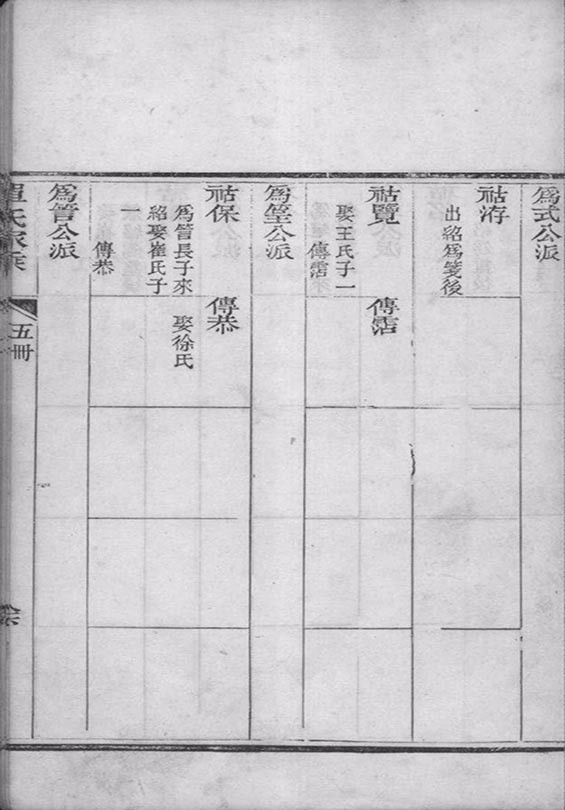 爲式公派
祜洊
出紹爲箋後
祜覽
娶王氏子一
傳霑
傳霑
爲 公派
祜保
爲管長子來
紹娶崔氏子
一
傳恭
傳恭
娶徐氏
爲管公派
氏家族
五冊